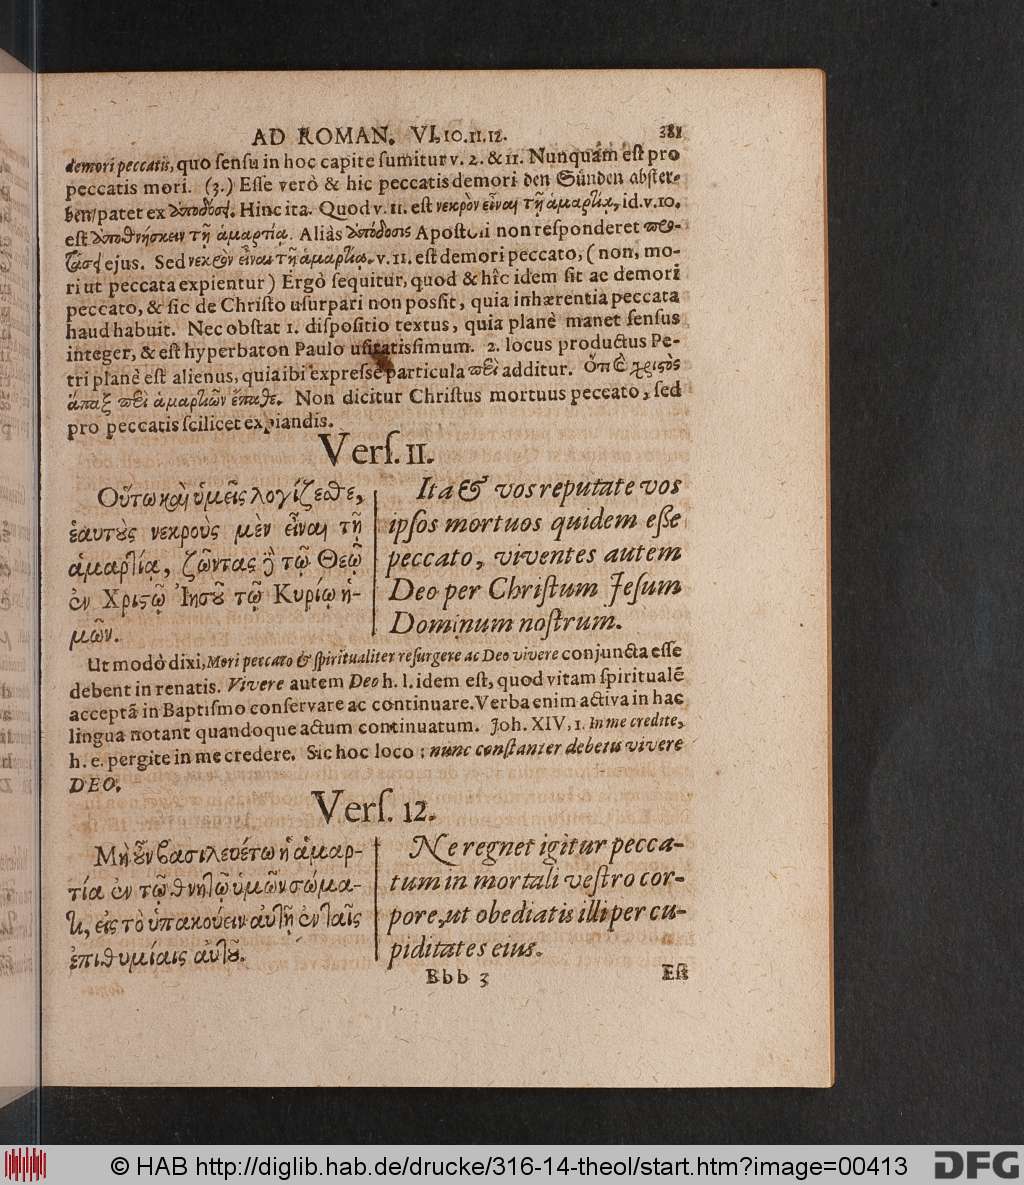 AD ROMAN. VI. 10. 11. 12. 381
demori peccatis, quo ſenſu in hoc capite ſumitur v. 2. & 11. Nunquám eſt pro
peccatis mori. (3.) Eſſe verò & hic peccatis demori den Sünden abſter-
ben/ patet ex ἀποδόσει. Hinc ita. Quod v. 11. eſt νεκρὸν εἶναι τῇ ἁμαρτίᾳ, id. v. 10.
eſt ἀποθνήσκειν τῇ ἁμαρτίᾳ. Aliàs ἀπόδοσις Apoſtoli non reſponderet προ-
τάσει ejus. Sed νεκρὸν εἶναι τῇ ἁμαρτίᾳ. v. 11. eſt demori peccato, (non, mo-
ri ut peccata expientur) Ergò ſequitur, quod & hîc idem ſit ac demori
peccato, & ſic de Chriſto uſurpari non poſſit, quia inhærentia peccata
haud habuit. Nec obſtat 1. diſpoſitio textus, quia planè manet ſenſus
integer, & eſt hyperbaton Paulo uſitatiſſimum. 2. locus productus Pe-
tri planè eſt alienus, quia ibi expreſſè particula περὶ additur. Ὅτι καὶ χριστὸς
ἅπαξ περὶ ἁμαρτιῶν ἔπαθε. Non dicitur Chriſtus mortuus peccato, ſed
pro peccatis ſcilicet expiandis.
Verſ. 11.
Οὕτω καὶ ὑμεῖς λογίζεσθε,
ἑαυτοὺς νεκροὺς μὲν εἶναι τῇ
ἁμαρτίᾳ, ζῶντας δὲ τῷ Θεῷ
ἐν Χριστῷ Ἰησοῦ τῷ Κυρίῳ ἡ-
μῶν.
Ita & vos reputate vos
ipſos mortuos quidem eſſe
peccato, viventes autem
Deo per Chriſtum Jeſum
Dominum noſtrum.
Ut modò dixi, Mori peccato & ſpiritualiter reſurgere ac Deo vivere conjuncta eſſe
debent in renatis. Vivere autem Deo h. l. idem eſt, quod vitam ſpiritualẽ
acceptã in Baptiſmo conſervare ac continuare. Verba enim activa in hac
lingua notant quandoque actum continuatum. Joh. XIV, 1. In me credite,
h. e. pergite in me credere. Sic hoc loco; nunc conſtanter debetis vivere
DEO.
Verſ. 12.
Μὴ οὖν βασιλευέτω ἡ ἁμαρ-
τία ἐν τῷ θνητῷ ὑμῶν σώμα-
τι, εἰς τὸ ὑπακούειν αὐτῇ ἐν ταῖς
ἐπιθυμίαις αὐτοῦ.
Ne regnet igitur pecca-
tum in mortali veſtro cor-
pore, ut obediatis illi per cu-
piditates eius.
Bbb 3 Eſt
© HAB http://diglib.hab.de/drucke/316-14-theol/start.htm?image=00413 DFG